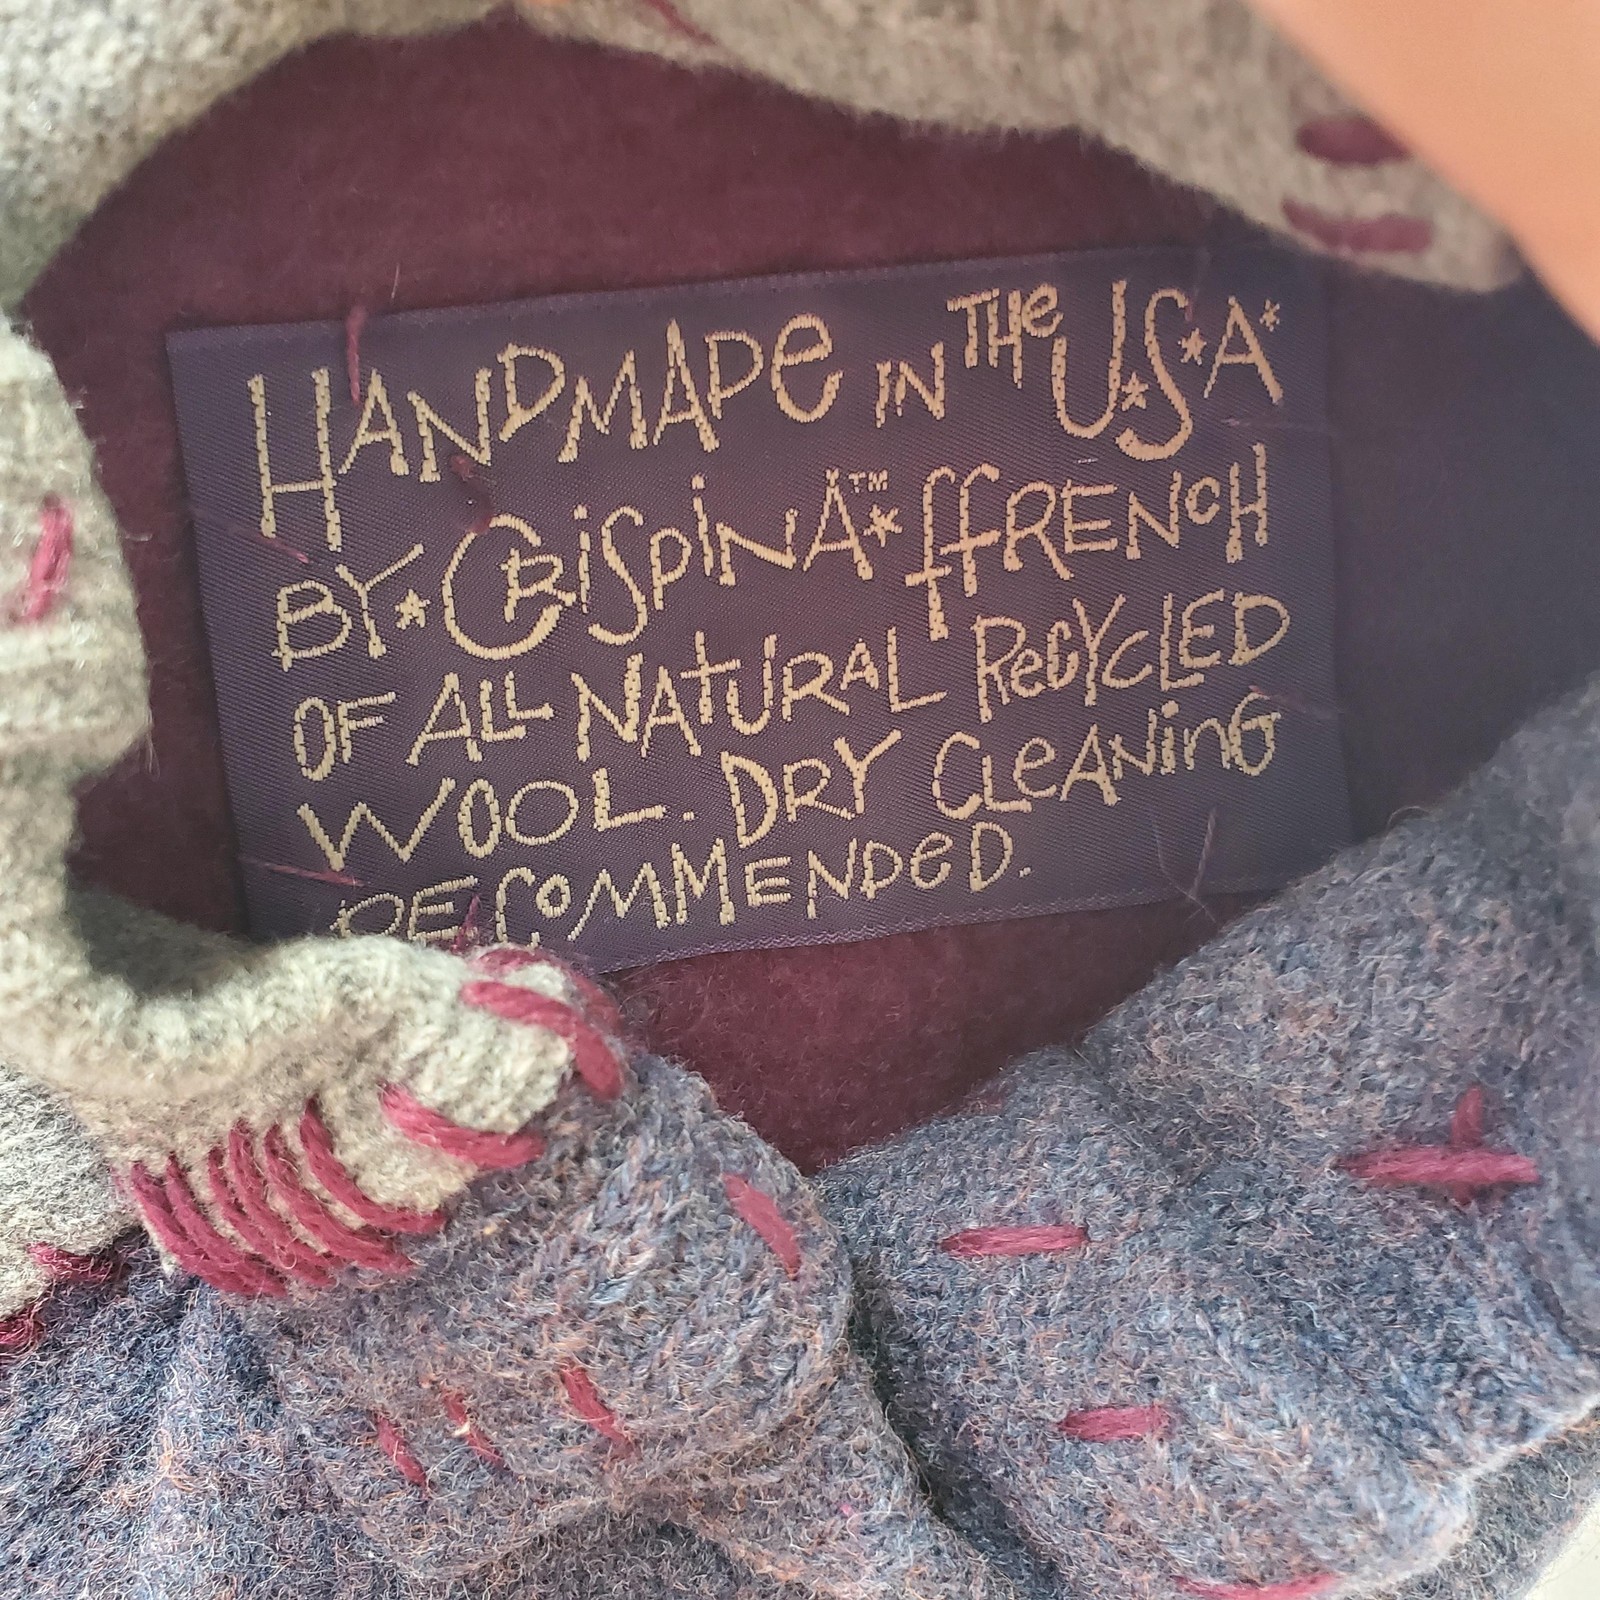 HANDMADE IN THE U*S*A*
BY*CRISPINA™* ffRENCH
OF ALL NATURAL RECYCLED
WOOL. DRY CLEANING
RECOMMENDED.